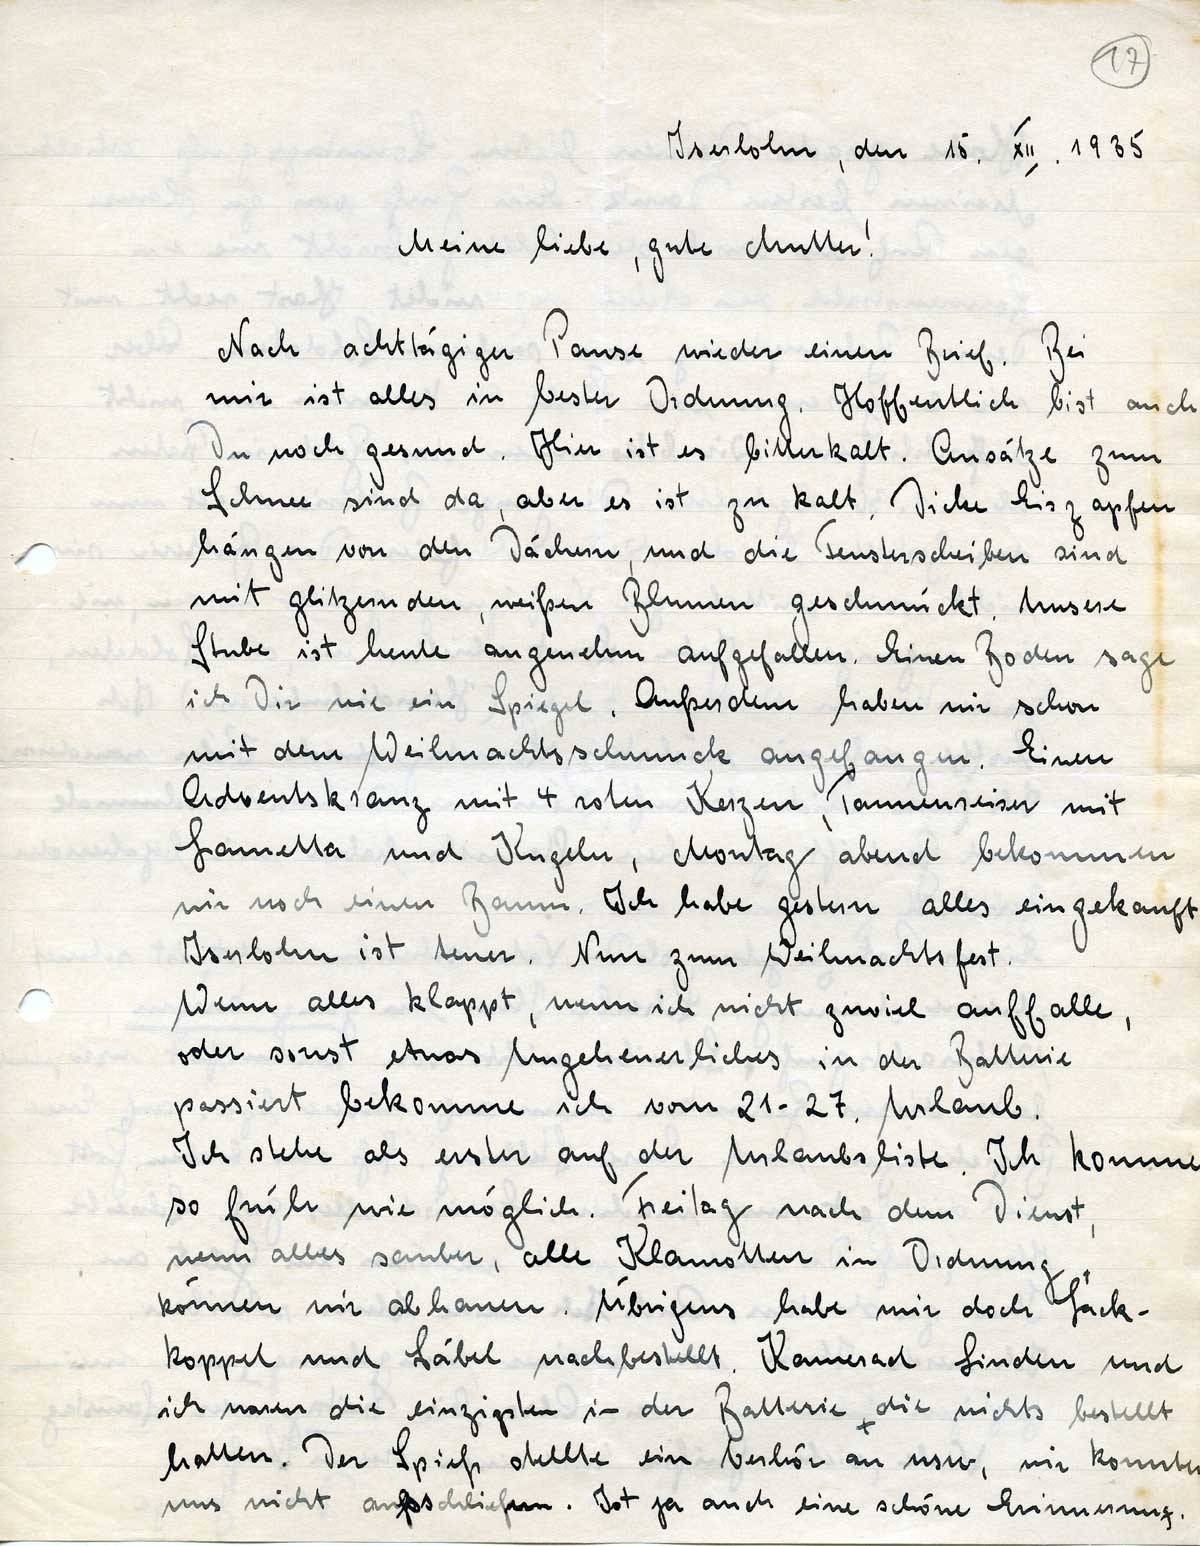 17
Iserlohn, den 15. XII. 1935
Meine liebe, gute Mutter!
Nach achttägiger Pause wieder einen Brief. Bei
mir ist alles in bester Ordnung. Hoffentlich bist auch
Du noch gesund. Hier ist es bitterkalt. Ansätze zum
Schnee sind da, aber es ist zu kalt. Dicke Eiszapfen
hängen von den Dächern, und die Fensterscheiben sind
mit glitzernden, weißen Blumen geschmückt. Unsere
Stube ist heute angenehm aufgefallen. Einen Boden sage
ich Dir wie ein Spiegel. Außerdem haben wir schon
mit dem Weihnachtsschmuck angefangen. Einen
Adventskranz mit 4 roten Kerzen, Tannenreiser mit
Lametta und Kugeln, Montag abend bekommen
wir noch einen Baum. Ich habe gestern alles eingekauft
Iserlohn ist teuer. Nun zum Weihnachtsfest.
Wenn alles klappt, wenn ich nicht zuviel auffalle,
oder sonst etwas Ungeheuerliches in der Batterie
passiert bekomme ich vom 21-27. Urlaub.
Ich stehe als erster auf der Urlaubsliste. Ich komme
so früh wie möglich. Freitag nach dem Dienst,
wenn alles sauber, alle Klamotten in Ordnung
können wir abhauen. Übrigens habe mir doch
koppel und Säbel nachbestellt. Kamerad Linden und
ich waren die einzigsten in der Batterie, die nichts bestellt
hatten. Der Spieß stellte ein Verhör an usw, wir konnten
uns nicht ausschließen. Ist ja auch eine schöne Erinnerung.